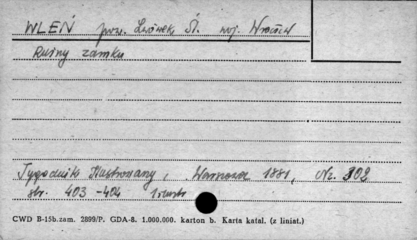 WLEŃ pow. Lwówek Śl. woj. Wrocław
Ruiny zamku
Tygodnik Ilustrowany, Warszawa 1881, Nr. 302
str. 403-404
CWD B-15b.zam. 2899/P. GDA-8. 1.000.000. karton b. Karta katal. (z liniat.)